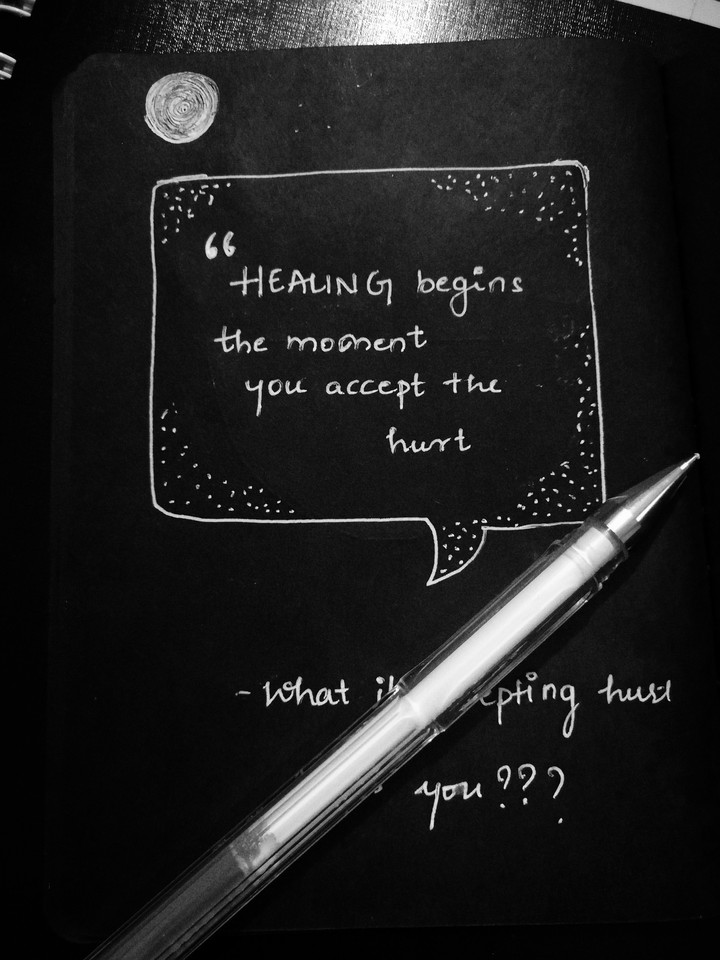 “HEALING begins
the moment
you accept the
hurt
- What accepting hurt
you???